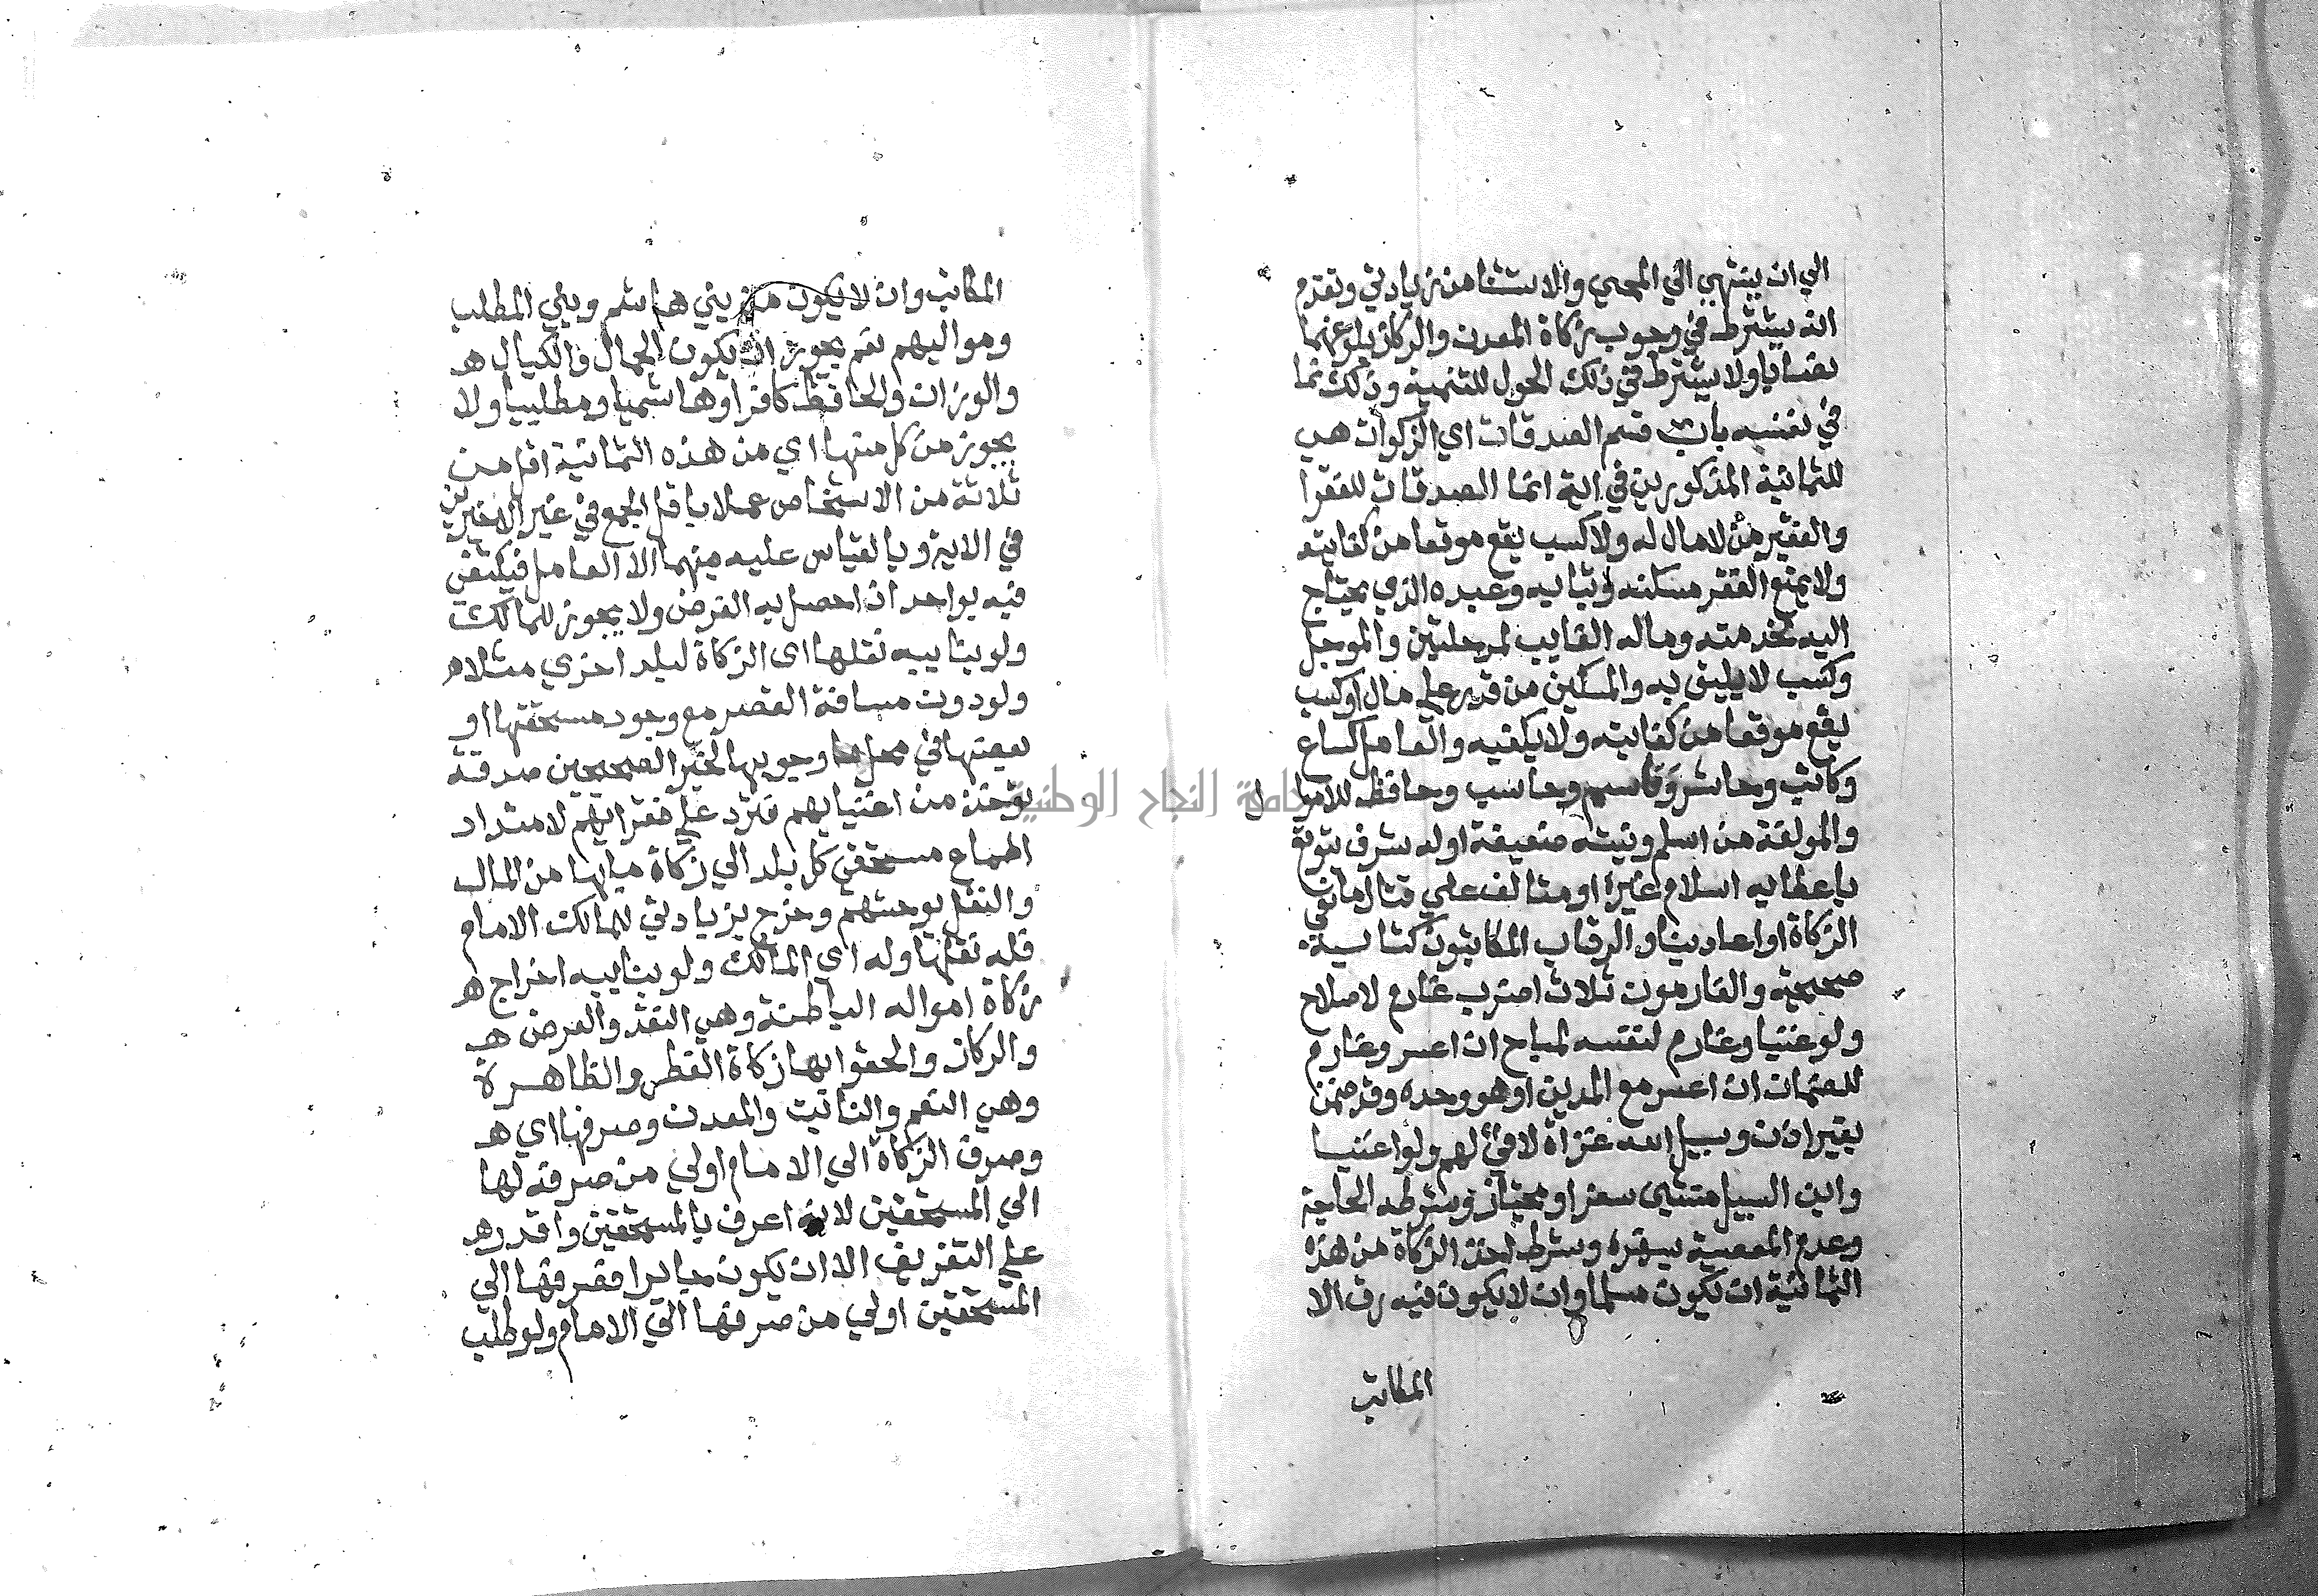 الي ان ينتهي الي المحيي والاستثنا من زيادتي وتقدم
انه يشترط في وجوب زكاة المعدن والركاز بلوغهما
نصابا ولا يشترط في ذلك الحول للتنمية وذلك نما
في نفسه باب قسم الصدقات اي الزكوات هي
للثمانية المذكورين في اية انما الصدقات للفقرا
والفقير من لا مال له ولا كسب يقع موقعا من كفايته
ولا يمنع الفقر مسكنه وثيابه وعبده الذي يحتاج
اليه لخدمته وماله الغايب لمرحلتين والموجل
وكسب لا يليق به والمسكين من قدر علي مال او كسب
يقع موقعا من كفايته ولا يكفيه والعامل كساع
وكاتب وحاشر وقاسم وحاسب وحافظ للاموال
والمولفة من اسلم ونيته ضعيفة او له شرف يتوقع
باعطايه اسلام غيره او متالف علي قتال مانعي
الزكاة او اعادينا والرقاب المكاتبون كتابة
صحيحة والغارمون ثلاث اضرب غارم لاصلاح
ولو غنيا وغارم لنفسه لمباح ان اعسر وغارم
للضمان ان اعسر مع المدين او هو وحده وقد ضمن
بغير اذن وسبيل الله غزاة لا فيء لهم ولو اغنيا
وابن السبيل منشي سفر او مجتاز وشرطه الحاجة
وعدم المعصية بسفره وشرط اخذ الزكاة من هذه
الثمانية ان يكون مسلما وان لا يكون فيه رق الا
المكاتب
المكاتب وان لا يكون من بني هاشم وبني المطلب
ومواليهم نعم يجوز ان يكون الحمال والكيال
والوزان والحافظ كافرا وهاشميا ومطلبيا ولا
يجوز من كل منها اي من هذه الثمانية اقل من
ثلاثة من الاشخاص عملا باقل الجمع في غير الاخيرين
في الاية وبالقياس عليه منهما الا العامل فيكتفي
فيه بواحد ان احصل به الغرض ولا يجوز للمالك
ولو بنايبه نقلها اي الزكاة لبلد اخري مثلا
ولو دون مسافة القصر مع وجود مستحقها او
بعضها في محل وجوبها لخبر الصحيحين صدقة
توخذ من اغنيايهم فترد علي فقرايهم لامتداد
اطماع مستحقي كل بلد الي زكاة ما بها من المال
والنقل يوحشهم وخرج بزيادتي للمالك الامام
فله نقلها وله اي المالك ولو بنايبه اخراج
زكاة امواله الباطنة وهي النقد والعرض
والركاز والحقوا بها زكاة الفطر والظاهرة
وهي النعم والنابت والمعدن وصرفها اي
وصرف الزكاة الي الامام اولي من صرفه لها
الي المستحقين لانه اعرف بالمستحقين واقدر
علي التفريق الا ان يكون جايرا فصرفها الي
المستحقين اولي من صرفها الي الامام ولو طلب
جامعة النجاح الوطنية